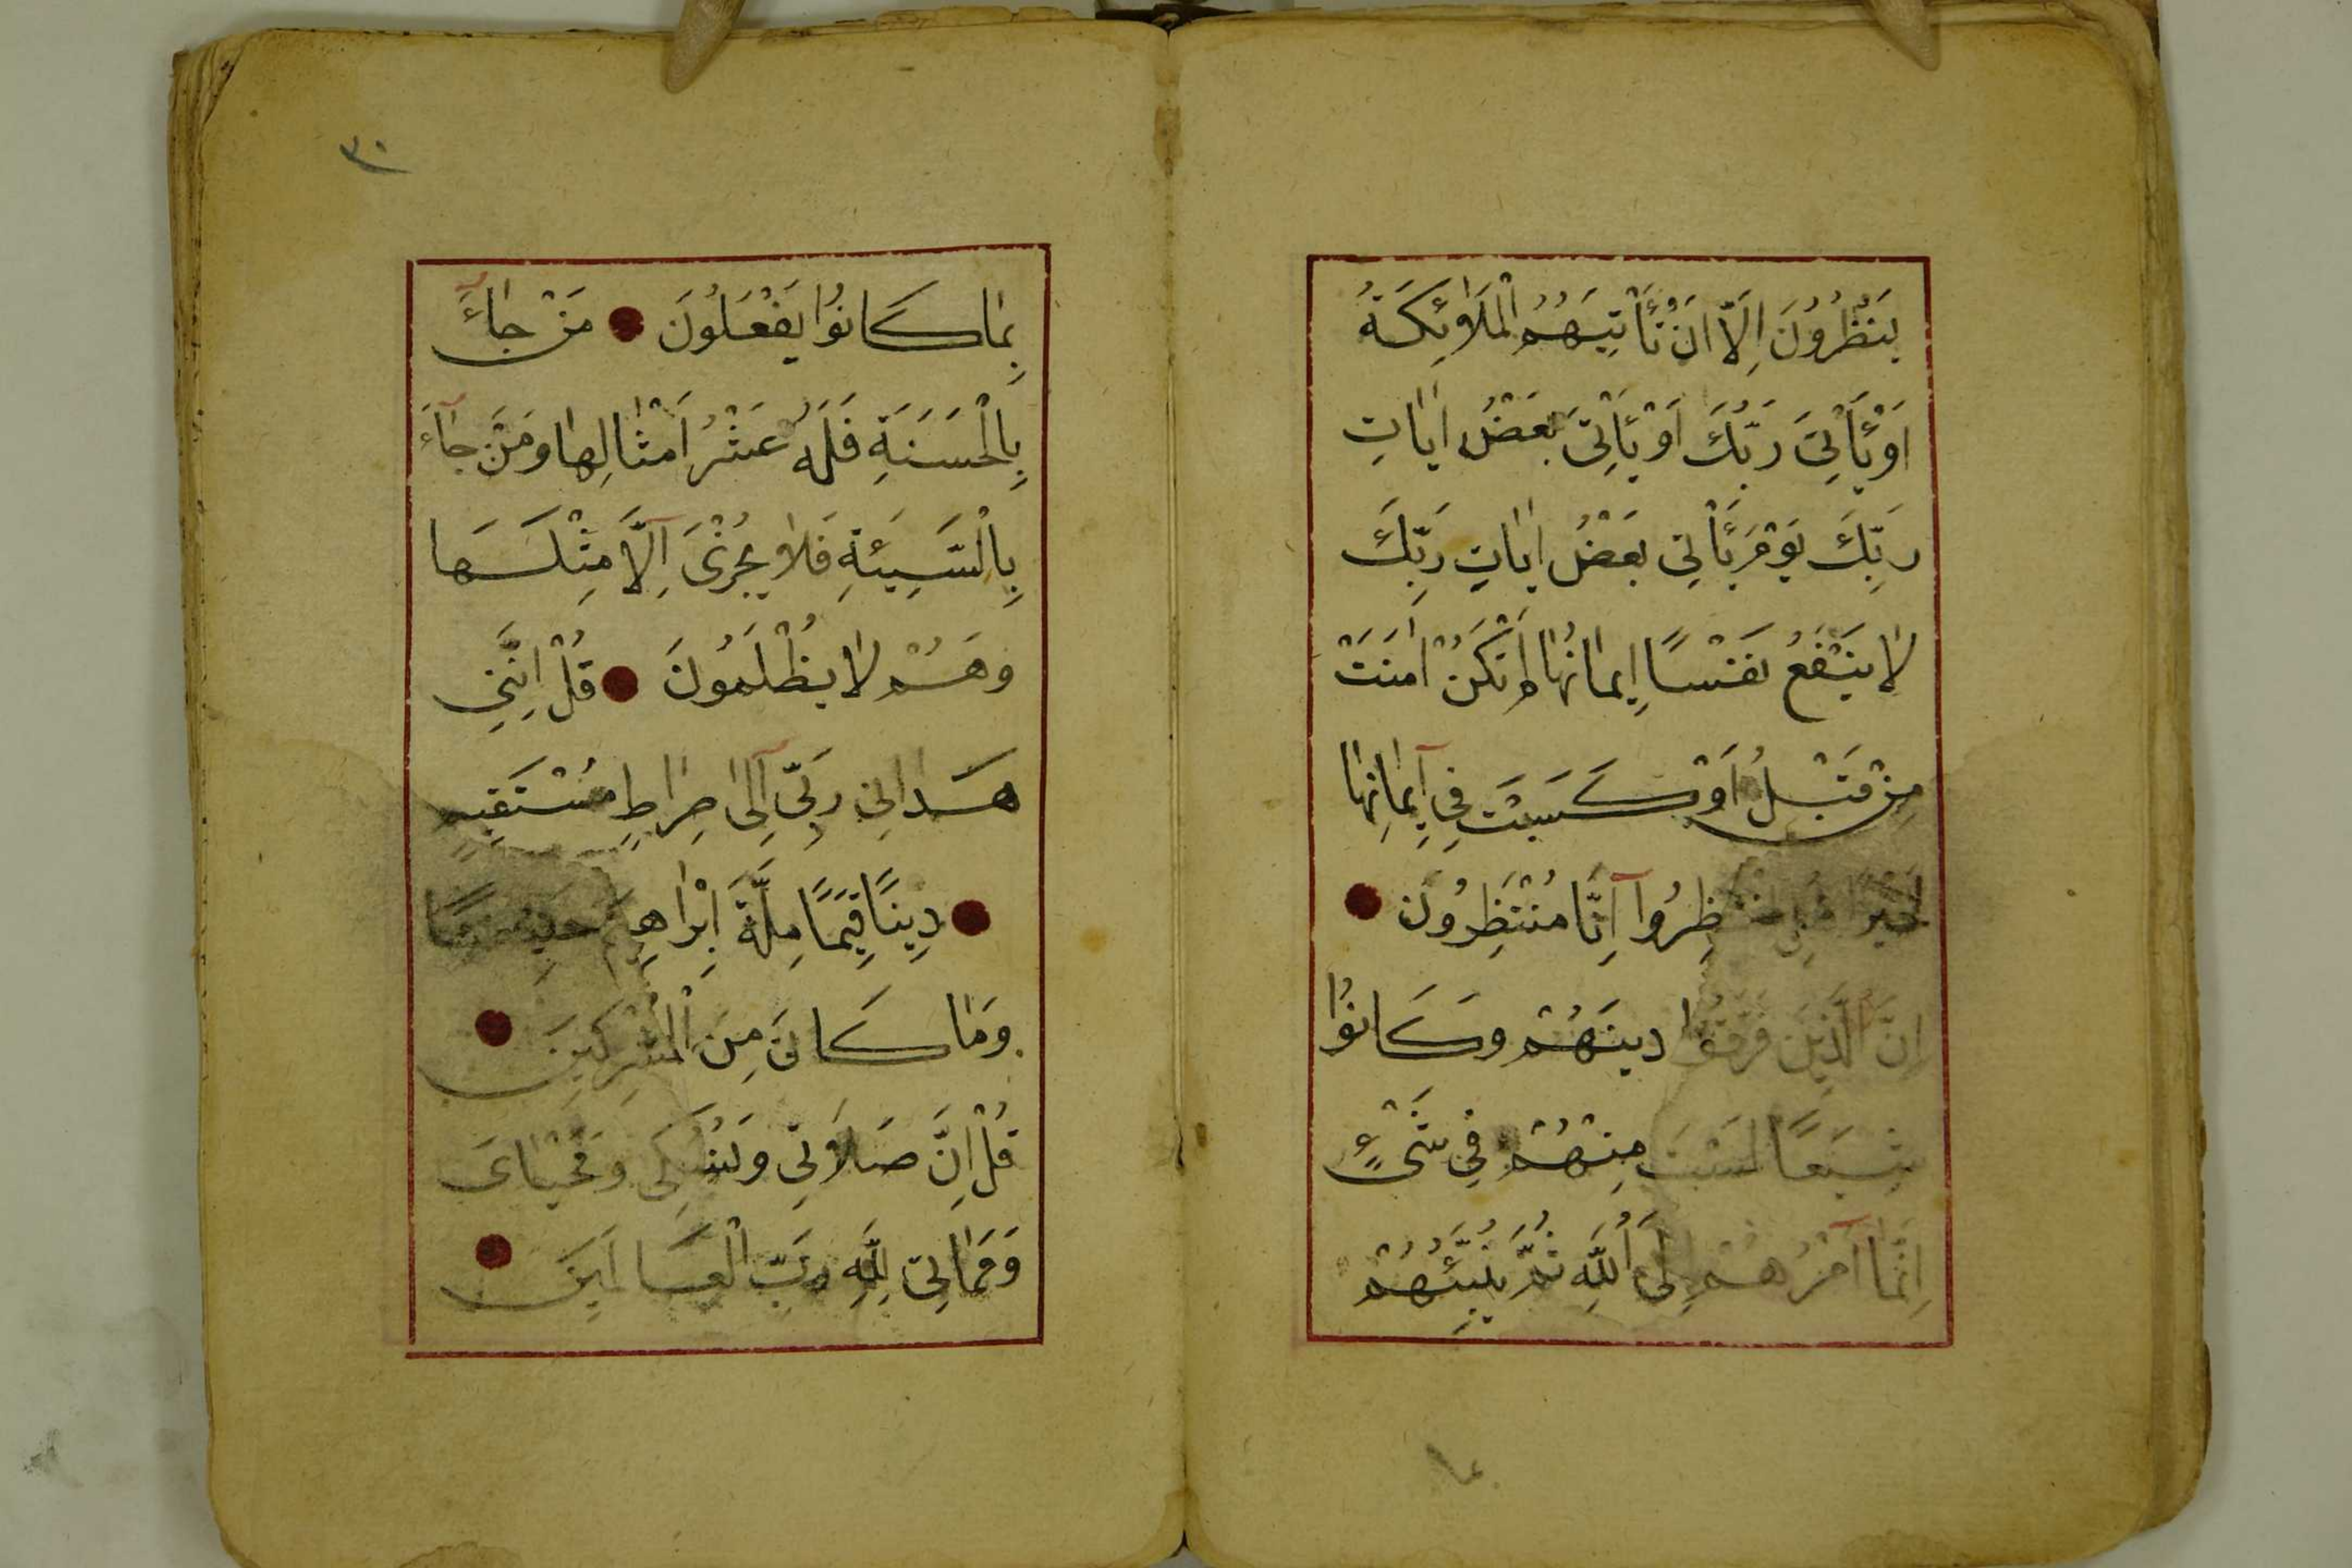 يَنْظُرُونَ اِلَّا اَنْ تَأْتِيَهُمُ الْمَلٰائِكَةُ
اَوْ يَأْتِىَ رَبُّكَ اَوْ يَأْتِىَ بَعْضُ اٰيَاتِ
رَبِّكَ يَوْمَ يَأْتِى بَعْضُ اٰيَاتِ رَبِّكَ
لٰا يَنْفَعُ نَفْسًا اِيمَانُهٰا لَمْ تَكُنْ اٰمَنَتْ
مِنْ قَبْلُ اَوْ كَسَبَتْ فِى اِيمٰانِهٰا
خَيْرًا قُلِ انْتَظِرُوا اِنَّا مُنْتَظِرُونَ
اِنَّ الَّذِينَ فَرَّقُوا دِينَهُمْ وَكَانُوا
شِيَعًا لَسْتَ مِنْهُمْ فِى شَىْءٍ
اِنَّمَا اَمْرُهُمْ اِلَى اللّٰهِ ثُمَّ يُنَبِّئُهُمْ
٣٠
بِمٰا كَانُوا يَفْعَلُونَ مَنْ جٰاءَ
بِالْحَسَنَةِ فَلَهُ عَشْرُ اَمْثٰالِهٰا وَمَنْ جٰاءَ
بِالسَّيِّئَةِ فَلٰا يُجْزٰىَ اِلَّا مِثْلَهَا
وَهُمْ لٰا يُظْلَمُونَ قُلْ اِنَّنِى
هَدٰانِى رَبِّى اِلٰى صِرٰاطٍ مُسْتَقِيمٍ
دِينًا قِيَمًا مِلَّةَ اِبْرٰاهِيمَ حَنِيفًا
وَمٰا كَانَ مِنَ الْمُشْرِكِينَ
قُلْ اِنَّ صَلَاتِى وَنُسُكِى وَمَحْيٰاىَ
وَمَمٰاتِى لِلّٰهِ رَبِّ الْعَالَمِينَ